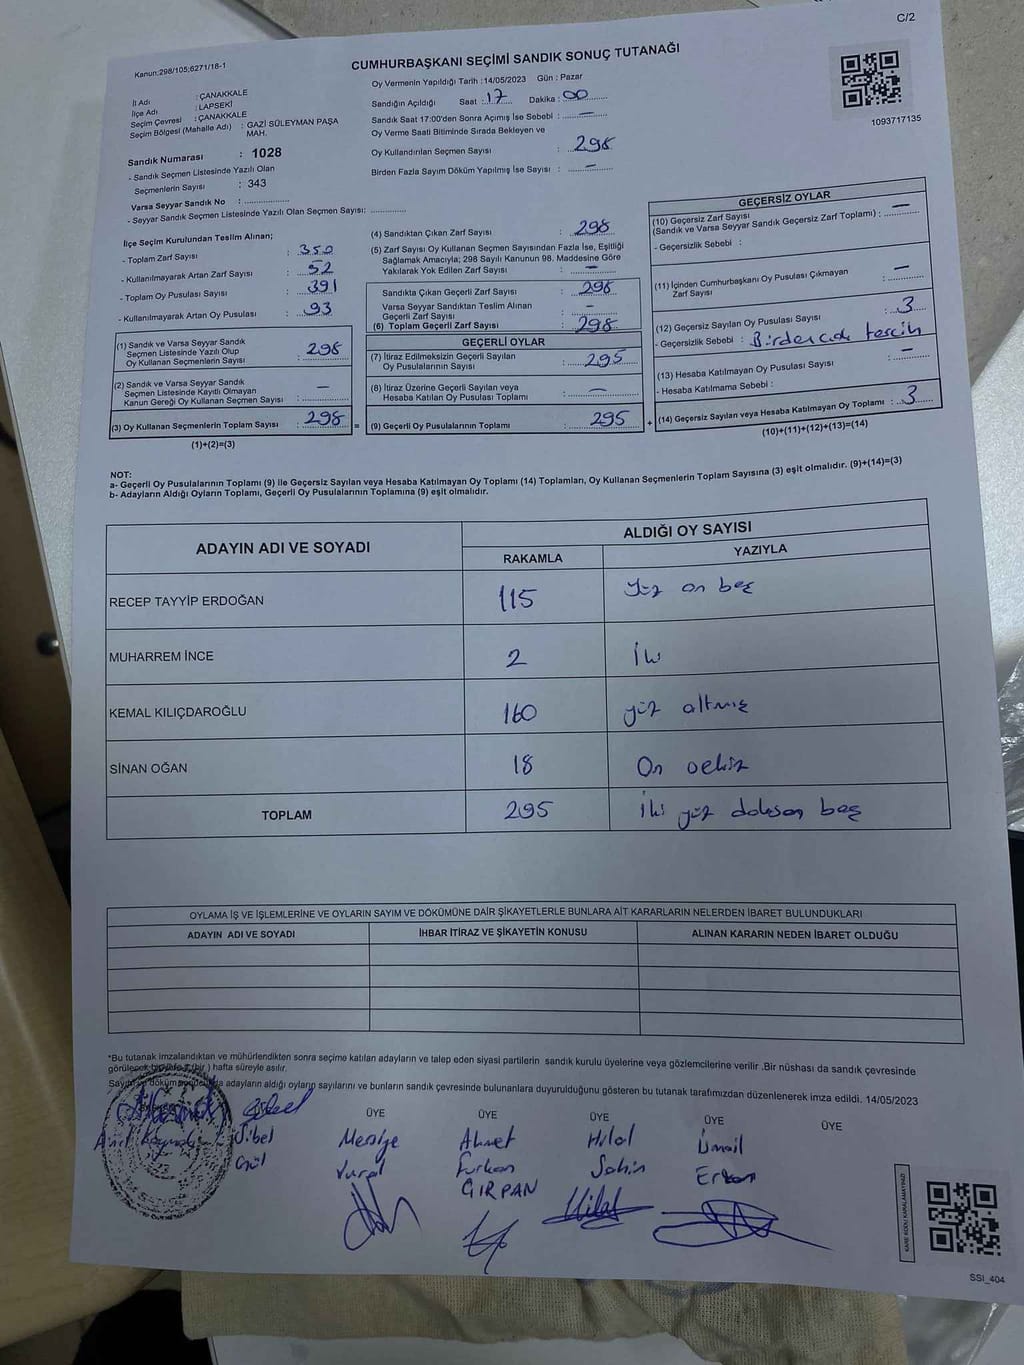 C/2
Kanun:298/105;6271/18-1
CUMHURBAŞKANI SEÇİMİ SANDIK SONUÇ TUTANAĞI
İl Adı : ÇANAKKALE
İlçe Adı : LAPSEKİ
Seçim Çevresi : ÇANAKKALE
Seçim Bölgesi (Mahalle Adı) : GAZİ SÜLEYMAN PAŞA MAH.
Sandık Numarası : 1028
- Sandık Seçmen Listesinde Yazılı Olan
Seçmenlerin Sayısı : 343
Varsa Seyyar Sandık No :
- Seyyar Sandık Seçmen Listesinde Yazılı Olan Seçmen Sayısı:
Oy Vermenin Yapıldığı Tarih :14/05/2023 Gün : Pazar
Sandığın Açıldığı Saat : 17 Dakika : 00
Sandık Saat 17:00'den Sonra Açımış İse Sebebi : —
Oy Verme Saati Bitiminde Sırada Bekleyen ve
Oy Kullandırılan Seçmen Sayısı : 298
Birden Fazla Sayım Döküm Yapılmış İse Sayısı : —
1093717135
İlçe Seçim Kurulundan Teslim Alınan;
- Toplam Zarf Sayısı : 350
- Kullanılmayarak Artan Zarf Sayısı : 52
- Toplam Oy Pusulası Sayısı : 391
- Kullanılmayarak Artan Oy Pusulası : 93
(1) Sandık ve Varsa Seyyar Sandık
Seçmen Listesinde Yazılı Olup
Oy Kullanan Seçmenlerin Sayısı : 298
(2) Sandık ve Varsa Seyyar Sandık
Seçmen Listesinde Kayıtlı Olmayan
Kanun Gereği Oy Kullanan Seçmen Sayısı : —
(3) Oy Kullanan Seçmenlerin Toplam Sayısı : 298 =
(1)+(2)=(3)
(4) Sandıktan Çıkan Zarf Sayısı : 298
(5) Zarf Sayısı Oy Kullanan Seçmen Sayısından Fazla İse, Eşitliği
Sağlamak Amacıyla; 298 Sayılı Kanunun 98. Maddesine Göre
Yakılarak Yok Edilen Zarf Sayısı : —
Sandıkta Çıkan Geçerli Zarf Sayısı : 298
Varsa Seyyar Sandıktan Teslim Alınan
Geçerli Zarf Sayısı : —
(6) Toplam Geçerli Zarf Sayısı : 298
GEÇERLİ OYLAR
(7) İtiraz Edilmeksizin Geçerli Sayılan
Oy Pusulalarının Sayısı : 295
(8) İtiraz Üzerine Geçerli Sayılan veya
Hesaba Katılan Oy Pusulası Toplamı : —
(9) Geçerli Oy Pusulalarının Toplamı : 295 +
GEÇERSİZ OYLAR
(10) Geçersiz Zarf Sayısı
(Sandık ve Varsa Seyyar Sandık Geçersiz Zarf Toplamı) : —
- Geçersizlik Sebebi :
(11) İçinden Cumhurbaşkanı Oy Pusulası Çıkmayan
Zarf Sayısı : —
(12) Geçersiz Sayılan Oy Pusulası Sayısı : 3
- Geçersizlik Sebebi : tercih
(13) Hesaba Katılmayan Oy Pusulası Sayısı : —
- Hesaba Katılmama Sebebi :
(14) Geçersiz Sayılan veya Hesaba Katılmayan Oy Toplamı : 3
(10)+(11)+(12)+(13)=(14)
NOT:
a- Geçerli Oy Pusulalarının Toplamı (9) ile Geçersiz Sayılan veya Hesaba Katılmayan Oy Toplamı (14) Toplamları, Oy Kullanan Seçmenlerin Toplam Sayısına (3) eşit olmalıdır. (9)+(14)=(3)
b- Adayların Aldığı Oyların Toplamı, Geçerli Oy Pusulalarının Toplamına (9) eşit olmalıdır.
ADAYIN ADI VE SOYADI
ALDIĞI OY SAYISI
RAKAMLA YAZIYLA
RECEP TAYYİP ERDOĞAN 115 Yüz on beş
MUHARREM İNCE 2 İki
KEMAL KILIÇDAROĞLU 160 yüz altmış
SİNAN OĞAN 18 On sekiz
TOPLAM 295 İki yüz doksan beş
OYLAMA İŞ VE İŞLEMLERİNE VE OYLARIN SAYIM VE DÖKÜMÜNE DAİR ŞİKAYETLERLE BUNLARA AİT KARARLARIN NELERDEN İBARET BULUNDUKLARI
ADAYIN ADI VE SOYADI İHBAR İTİRAZ VE ŞİKAYETİN KONUSU ALINAN KARARIN NEDEN İBARET OLDUĞU
*Bu tutanak imzalandıktan ve mühürlendikten sonra seçime katılan adayların ve talep eden siyasi partilerin sandık kurulu üyelerine veya gözlemcilerine verilir .Bir nüshası da sandık çevresinde
görülecek bir yere 1 (bir ) hafta süreyle asılır.
döküm adayların aldığı oyların sayılarını ve bunların sandık çevresinde bulunanlara duyurulduğunu gösteren bu tutanak tarafımızdan düzenlenerek imza edildi. 14/05/2023
ÜYE ÜYE ÜYE ÜYE ÜYE
Sibel Mersiye Ahmet Hilal İsmail
Gül Vural Furkan Şahin Erkan
GIRPAN
Hilal
KARE KODU KARALAMAYINIZ!
SSI_404